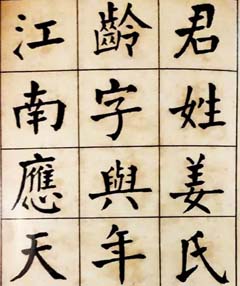 君姓姜氏
齡字與年
江南應天